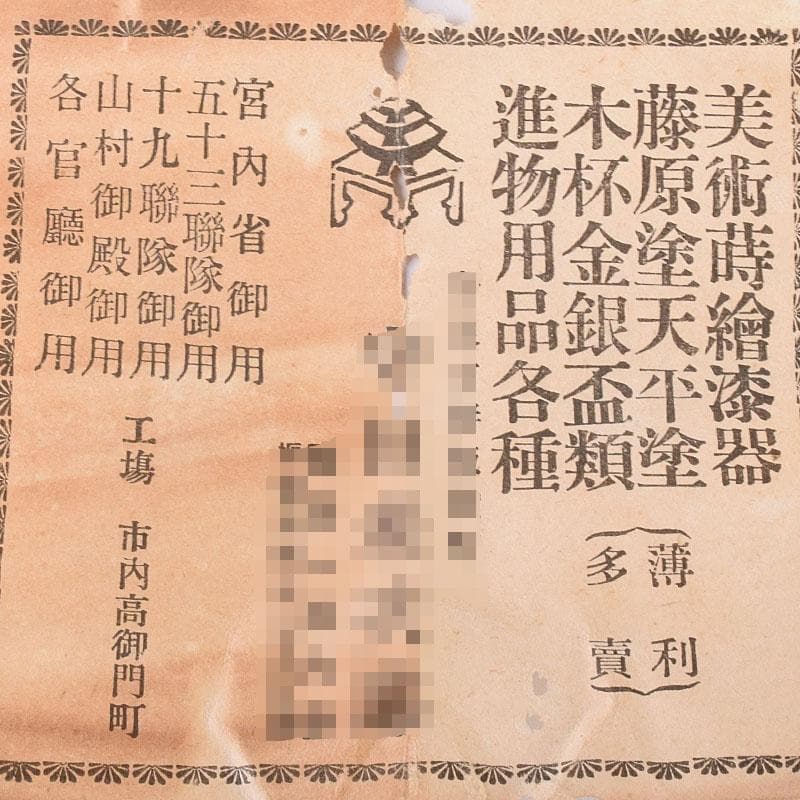 美術蒔繪漆器
藤原塗天平塗
木杯金銀盃類
進物用品各種
薄利
多賣
宮內省御用
五十三聯隊御用
十九聯隊御用
山村御殿御用
各官廳御用
工塲 市內高御門町